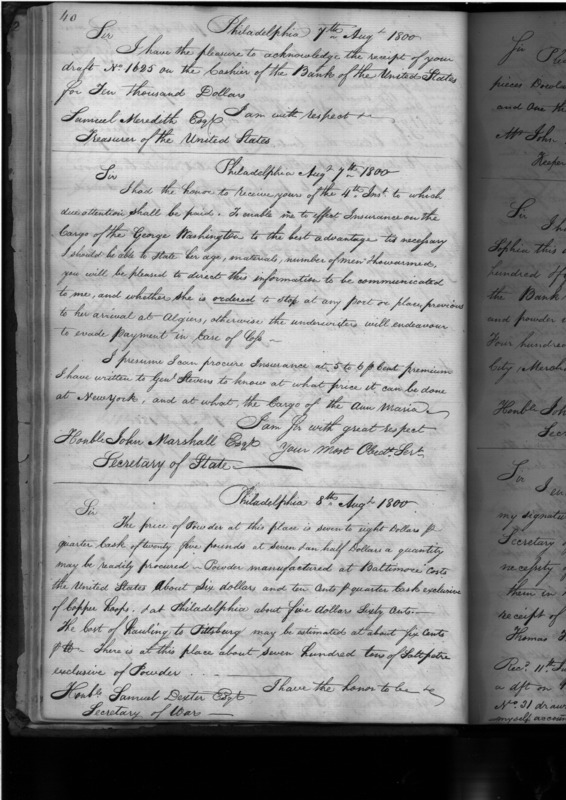 40
Philadelphia 7th Augt 1800
Sir
I have the pleasure to acknowledge the receipt of your
draft No 1625 on the Cashier of the Bank of the United States
for Ten thousand Dollars
I am with respect &c
Samuel Meredith Esqr
Treasurer of the United States
Philadelphia Augt 7th 1800
Sir
I had the honor to receive yours of the 4th Inst to which
due attention shall be paid. To enable me to effect Insurance on the
Cargo of the George Washington to the best advantage tis necessary
I should be able to State her age, materials, number of men & how armed,
you will be pleased to direct this information to be communicated
to me, and whether she is ordered to stop at any Port or place, previous
to her arrival at Algiers, otherwise the underwriters will endeavour
to evade payment in Case of Loss —
I presume I can procure Insurance at 5 to 6 p Cent premium
I have written to Genl Stevens to know at what price it can be done
at New York, and at what, the Cargo of the Ann Maria
I am Sir with great respect
Your Most Obedt Sert
Honble John Marshall Esqr
Secretary of State
Philadelphia 8th Augt 1800
Sir
The price of Powder at this place is seven to eight Dollars p
quarter Cask of twenty five pounds at Seven & an half Dollars a quantity
may be readily procured — Powder manufactured at Baltimore Costs
the United States about Six dollars and ten Cents p quarter Cask exclusive
of Copper hoops. & at Philadelphia about five dollars Sixty Cents —
The Cost of Hauling to Pittsburg may be estimated at about Six Cents
p lb — There is at this place about Seven hundred tons of Saltpetre
exclusive of Powder
I have the honor to be &c
Honble Samuel Dexter Esqr
Secretary of War
Sir
pieces
and one th
Mr John
Keeper
Sir
I ha
Sophia this
hundred
the Bank
and powder
Four hundre
City, Merch
Honble Joh
Secr
Sir
I en
my signat
Secretary
necessity of
them in
receipt of
Thomas
Recd 11th
a dft on
No 31 draw
myself accoun